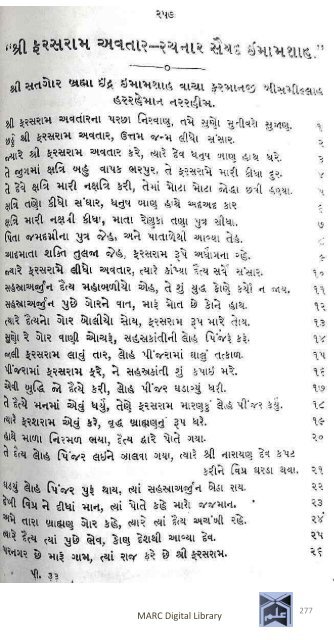 ૨૫૭
"શ્રી ફરસરામ અવતાર—રચનાર સૈયદ ઇમામશાહ."
શ્રી સતગોર બ્રહ્મા ઇંદ્ર ઇમામશાહ વાચા ફરમાનજી બીસમીલ્લાહ
હરરહેમાન નરરહીમ.
શ્રી ફરસરામ અવતારના પરછા નિરવાણ, તમે સુણો મુનીવરો સુજાણ. ૧
છઠું શ્રી ફરસરામ અવતાર, ઉત્તમ જન્મ લીધો સંસાર. ૨
જ્યારે શ્રી ફરસરામ અવતાર કરે, ત્યારે દેવ ધનુષ બાણ હાથ ધરે. ૩
તે જીગમાં ક્ષત્રિ બહુ વાપક ભરપુર, તે ફરસરામે મારી કીધા દુર. ૪
તે દેવે ક્ષત્રિ મારી નક્ષત્રિ કરી, તેમાં મોટા મોટા જોદ્ધા છવી હણ્યા. ૫
ક્ષત્રિ તણો કીધો સંધાર, ધનુષ બાણ હાથે અદઅદ કાર ૬
ક્ષત્રિ મારી નક્ષત્રી કીધા, માતા રેણુકા તણા પુત્ર સીધા. ૭
પિતા જમદગ્નીના પુત્ર જેહ, અને પાતાળેથી આવ્યા તેહ. ૮
આદમાતા શક્તિ તુલજા જેહ, ફરસરામ રૂપે અર્ધાંગના ગ્રહે. ૯
જ્યારે ફરસરામે લીધો અવતાર, ત્યારે કાંપ્યા દૈત્ય સર્વે સંસાર. ૧૦
સહસ્ત્રાઅર્જીન દૈત્ય મહાબળીઓ એહ, તે શું યુદ્ધ કોણે કર્યો ન જાય. ૧૧
સહસ્ત્રાઅર્જીન પુછે ગોરને વાત, મારૂં મોત છે કોને હાથ. ૧૨
ત્યારે દૈત્યનો ગોર બોલીયો સોય, ફરસરામ રૂપ મારે તોય. ૧૩
સુણો રે ગોર વાણી ઓચરૂં, સહસકાંતીની લોહ પિંજર કરૂં. ૧૪
બલી ફરસરામ લાવું તાર, લોહ પીંજરામાં ઘાલું તત્કાળ. ૧૫
પીંજરામાં ફરસરામ ફરે, ને સહસકાંતી શું કપાઇ મરે. ૧૬
એવી બુદ્ધિ જો દૈત્યે કરી, લોહ પીંજર ઘડાવ્યું ધરી. ૧૭
તે દૈત્યે મનમાં એવું ધર્યું, તેણે ફરસરામ મારણકું લોહ પિંજર કર્યું. ૧૮
ત્યારે ફરશરામ એવું કરે, વૃદ્ધ બ્રાહ્મણનું રૂપ ધરે. ૧૯
હાથે માળા નિરમળ ભયા, દૈત્ય દ્વારે પોતે ગયા. ૨૦
તે દૈત્ય લોહ પિંજર લઇને ગાલવા ગયા, ત્યારે શ્રી નારાયણ દેવ કપટ
કરીને વિપ્ર ઘરડા થયા. ૨૧
ઘડયું લોહ પિંજર પુરૂં થાય, ત્યાં સહસ્ત્રાઅર્જીન બેઠા રાય. ૨૨
દેખી વિપ્ર ને દીધાં માન, ત્યાં પોતે કહે મારો જજમાન. ૨૩
અમે તારા બ્રાહ્મણ ગોર કહે, ત્યારે ત્યાં દૈત્ય અચંબી રહે. ૨૪
ત્યારે દૈત્ય ત્યાં પુછે ભેવ, કોણ દેશથી આવ્યા દેવ. ૨૫
પરનગર છે મારૂં ગામ, ત્યાં રાજ કરે છે શ્રી ફરસરામ. ૨૬
પી. ૩૩
MARC Digital Library
277